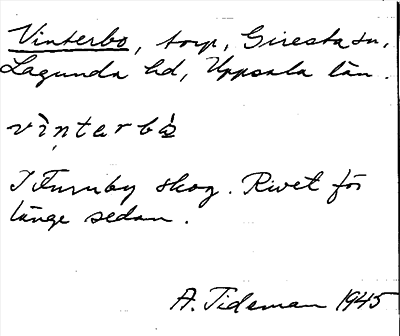 Vinterbo, torp, Giresta sn,
Lagunda hd, Uppsala län.
vìntarbó
I Furuby skog. Rivet för
länge sedan.
A. Tideman 1945